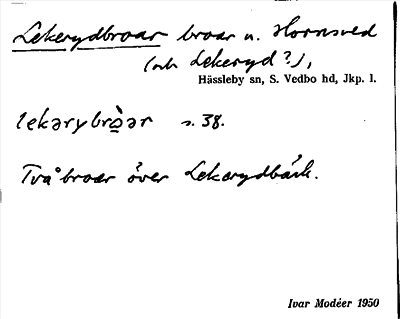 Lekerydbroar broar u. Hornsved
(och Lekeryd?),
Hässleby sn, S. Vedbo hd, Jkp. l.
lekərybròər s. 38.
Två broar över Lekerydbäck.
Ivar Modéer 1950